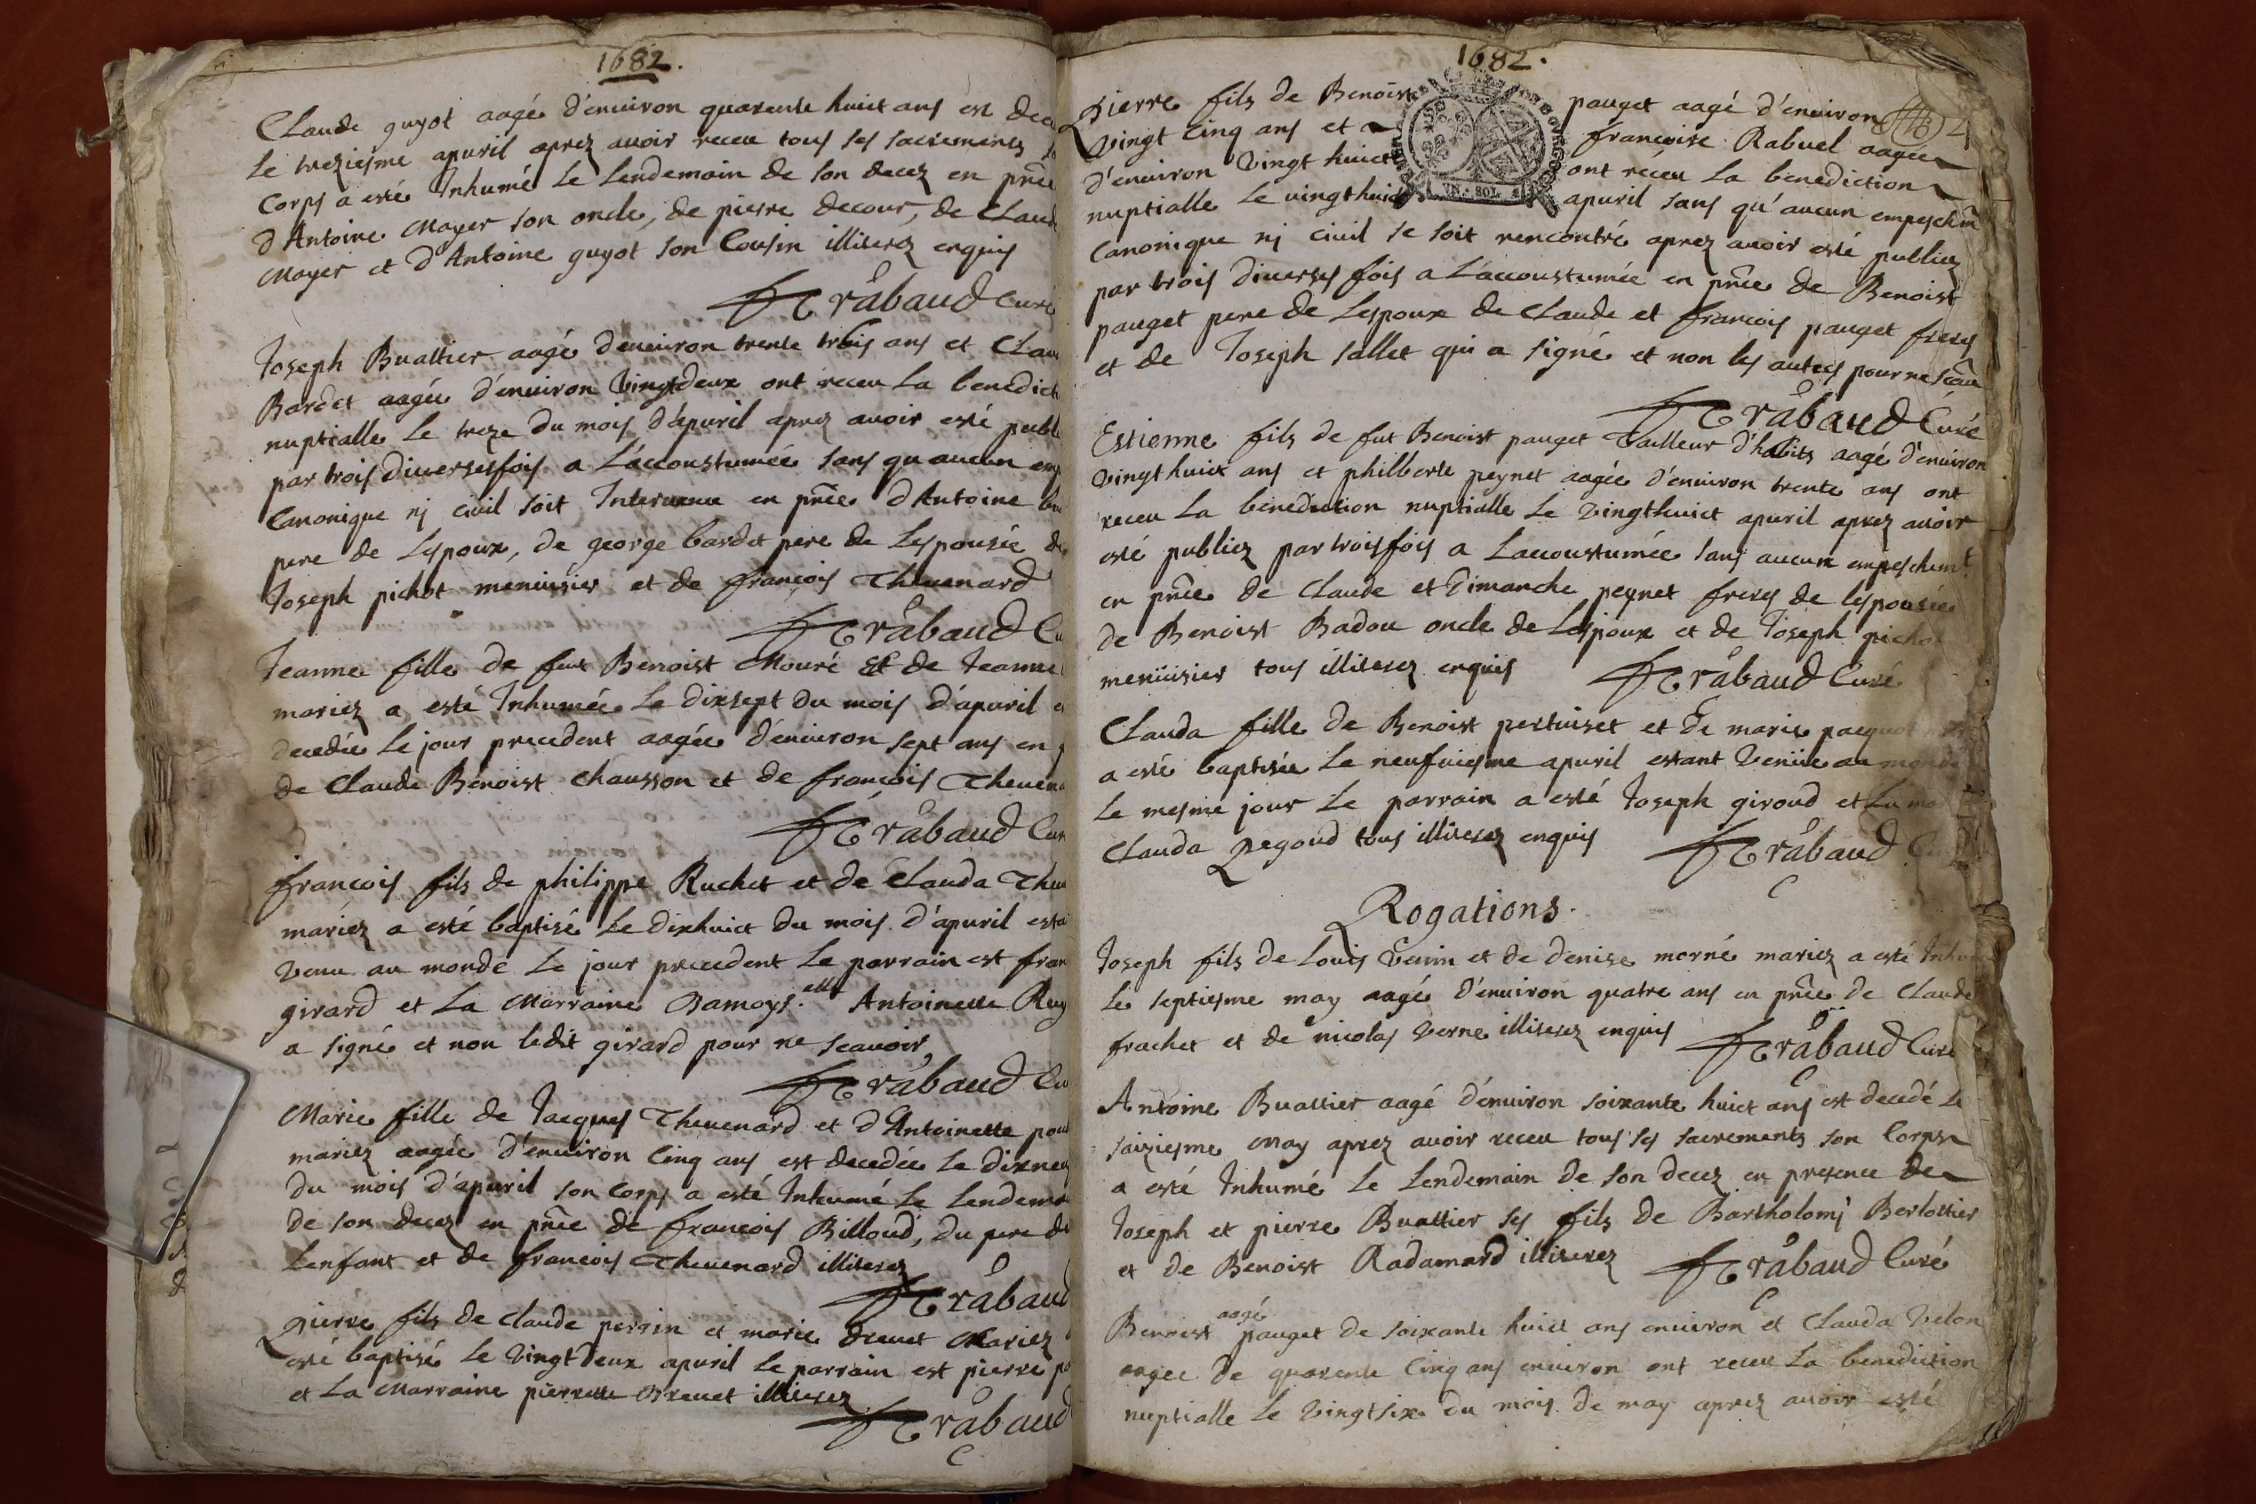 1682.
Claude guyot aagé d'enuiron quarente huict ans est
le treziesme apuril aprez auoir receu tous ses sacrements
corps a esté Inhumé le lendemain de son decez en pñce
d'Antoine Mayer son oncle, de pierre decour, de Claude
Mayer et d'Antoine guyot son Cousin illiterez enquis
Trabaud Curé
Joseph Buattier aagé denuiron trente trois ans et
Bardet aagée d'enuiron Vingtdeux ont receu la
nuptialle le treze du mois d'apuril aprez auoir esté
par trois diuerses fois a L'accoustumée sans qu aucun
Canonique nj ciuil soit Interuenu en pñce d'Antoine
pere de Lespoux, de george bardet pere de Lespousée
Joseph pichot menuisier et de françois Theuenard
Trabaud
Jeanne fille de feut Benoist Mouré Et de Jeanne
mariez a esté Inhumée le dixsept du mois d'apuril
decedée le jour precedent aagée d'enuiron sept ans en
de Claude Benoist chausson et de françois
Trabaud
françois fils de philippe Ruchet et de Clauda
mariez a esté baptisé le dixhuict du mois d'apuril
venu au monde le jour precedent le parrain est
girard et La Marraine Damoys.elle Antoinette
a signé et non ledit girard pour ne scauoir,
Trabaud
Marie fille de Jacques Theuenard et d'Antoinette
mariez aagée d'enuiron Cinq ans est decedée le
du mois d'apuril son corps a esté Inhumé le
de son decez en pñce de françois Billoud, du pere de
Lenfant et de françois Theuenard illiterez
Trabaud
pierre fils de Claude perrin et marie dreuet Mariez
esté baptisé le Vingtdeux apuril le parrain est pierre
et La Marraine pierrette Dreuet illiterez
Trabaud
1682.
Pierre fils de Benoist pauget aagé d'enuiron
Vingt Cinq ans et francoise Rabuel aagée
d'enuiron Vingt huict ont réceu La benediction
nuptialle le uingthuict apuril sans qu'aucun empeschm̃
Canonique nj ciuil se soit rencontré aprez auoir esté publiez
par trois diuerses fois a L'accoustumée en pñce de Benoist
pauget pere de Lespoux de Claude et françois pauget freres
et de Joseph sallet qui a signé et non les autres pour ne
Trabaud Curé
Estienne fils de feut Benoist pauget Tailleur d'habits aagé d'enuiron
vingthuict ans et philberte peynet aagée d'enuiron trente ans ont
receu La benediction nuptialle le vingthuict apuril aprez auoir
esté publiez par trois fois a Laccoustumée sans aucun empeschemt
en pñce de Claude et Dimanche peynet freres de lespousée
de Benoist Badou oncle de Lespoux et de Joseph
menuisier tous illiterez enquis
Trabaud Curé
Clauda fille de Benoist pertuiset et de marie
a esté baptisée le neufuiesme apuril estant Venüe au
le mesme jour le parrain a esté Joseph giroud et
Clauda Pegoud tous illiterez enquis
Trabaud
Rogations.
Joseph fils de Louis Verin et de denise morné mariez a esté
le septiesme may aagé d'enuiron quatre ans en pñce de Claude
frachet et de nicolas verne illiterez enquis
Trabaud Curé
Antoine Buattier aagé d'enuiron soixante huict ans est decedé le
saiziesme May aprez auoir receu tous ses sacrements son Corps
a esté Inhumé le Lendemain de son decez en presence de
Joseph et pierre Buattier ses fils de Bartholomj Berlottier
et de Benoist Radamard illiterez
Trabaud Curé
Benoist aagé pauget de soixante huict ans enuiron et Clauda Velon
aagée de quarente Cinq ans enuiron ont receu La benediction
nuptialle le Vingtsix du mois de may aprez auoir esté